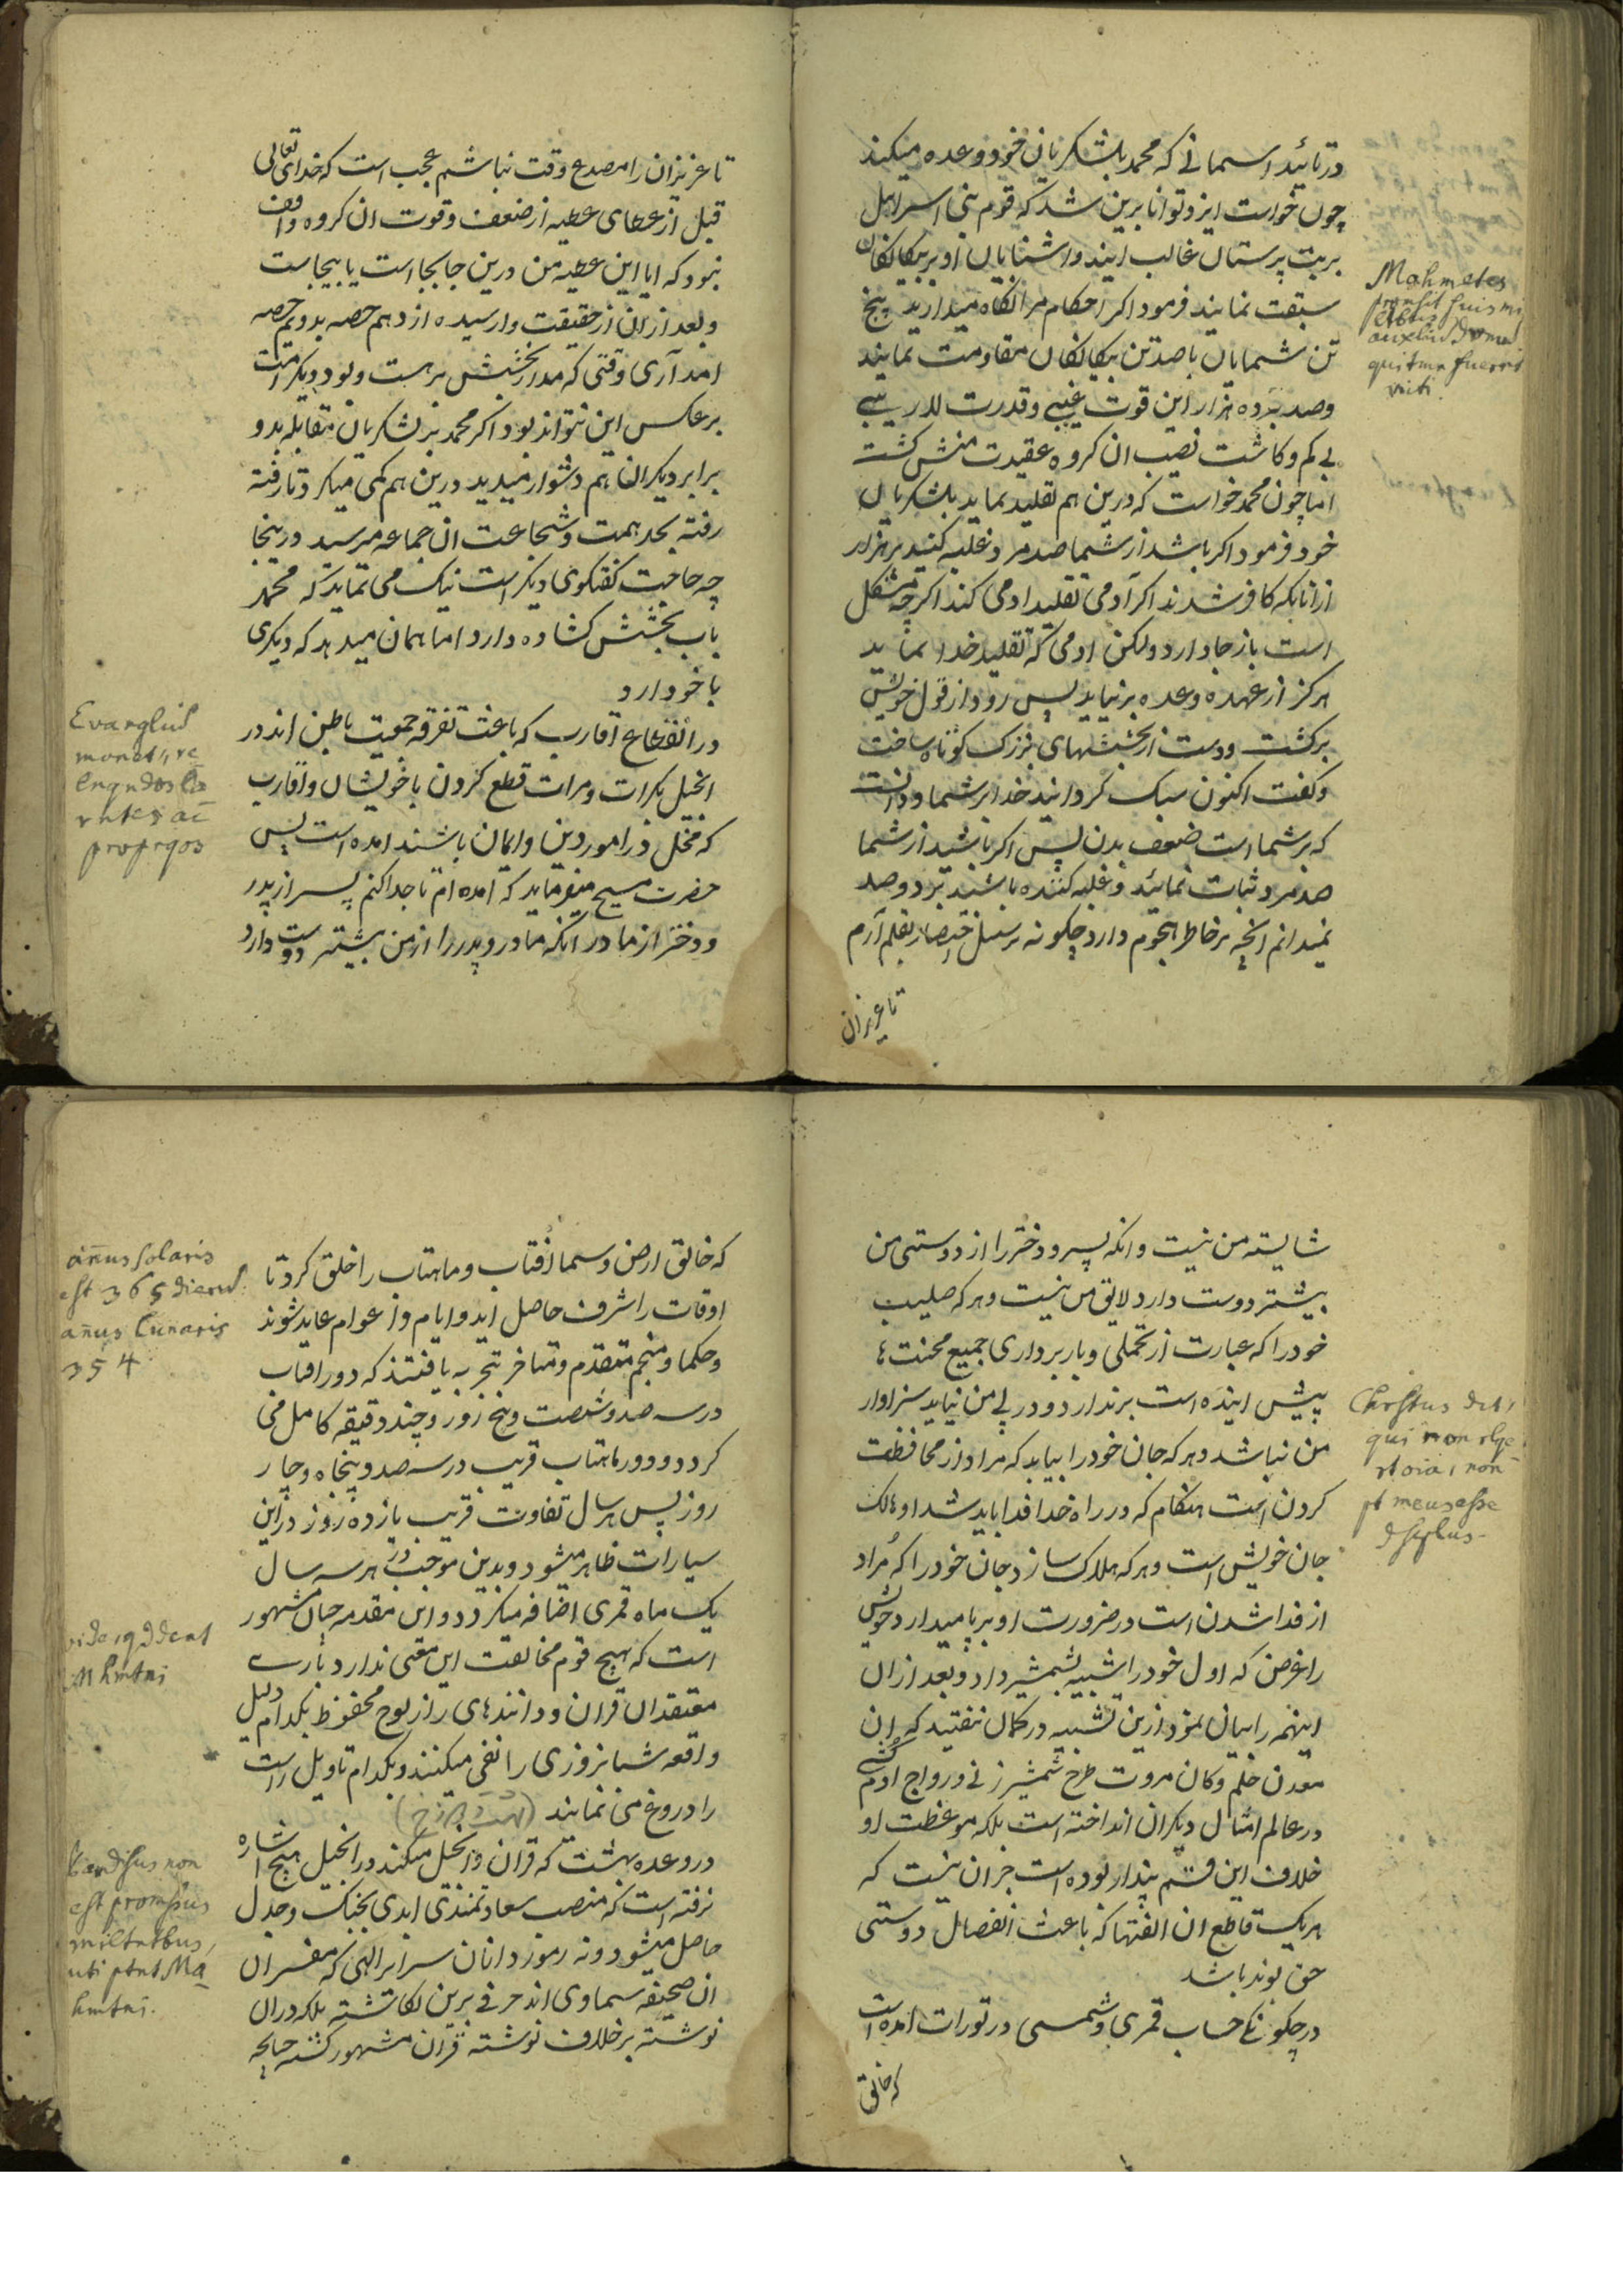 در تائید اسمانی که محمد بلشکریان خود وعده میکند
چون خواست ایزد توانا برین شد که قوم بنی اسرائیل
بر بت پرستان غالب ایند و اشنایان او بر بیگانگان
سبقت نمایند فرمود اکر احکام مرا نگاه میدارید پنج
تن شمایان باصد تن بیگانگان مقاومت نمایند
وصد برده هزار این قوت غیبی و قدرت لاریبی
بی کم و کاست نصیب ان کروه عقیدت منش گشت
اما چون محمد خواست که درین هم تقلید نماید بلشکریان
خود فرمود اکر باشد از شما صد مرد غلبه کنید بر هزار
از انانکه کافر شدند اکر آدمی تقلید ادمی کند اکرچه مشکل
است باز جا دارد ولکن ادمی که تقلید خدا نماید
هرکز از عهده وعده برنیاید پس رود از قول خویش
برکشت و دست از بخششهای بزرک کوتاه ساخت
و کفت اکنون سبک کردانید خدا بر شما و دانست
که بر شما است ضعف بدن پس اکر باشید از شما
صد مرد ثبات نمائید و غلبه کننده باشید بر دو صد
نمیدانم انچه بر خاطر هجوم دارد چکونه بر سبیل اختصار بقلم آرم
تا عزیزان
Mahmetes
promsit suis mi
litbus
auxiliũ
qui tmn fuerut
victi.
تا عزیزان را مصدع وقت نباشم عجب است که خدای تعالی
قبل از عطای عطیه از ضعف و قوت ان کروه واقف
نبود که ایا این عطیه من درین جا بجا است یا بیجاست
و بعد از ان از حقیقت وارسیده از دهم حصه بدویم حصه
امد آری وقتی که مدار بخشش بر هست و بود دیکر است
برعکس این نتواند بود اکر محمد بر لشکریان مقابله بدو
برابر دیکران هم دشوار میدید درین هم کمی میکرد تا رفته
رفته بحد همت و شجاعت ان جماعه میرسید در ینجا
چه حاجت کفتکوی دیکر است نیک می نماید که محمد
باب بخشش کشاده دارد اما همان میدهد که دیکری
با خود دارد
در انقطاع اقارب که باعث تفرقه جمعیت باطن اند در
انجیل بکرات و مرات قطع کردن با خویشان و اقارب
که مخل در امور دین و ایمان باشند امده است پس
حضرت مسیح میفرماید که امده ام تا جدا کنم پسر از پدر
و دختر از مادر انکه مادر و پدر را از من بیشتر دوست دارد
Evangliũ
monet, re
linqndos
pro
شایسته من نیست و انکه پسر و دختر را از دوستی من
بیشتر دوست دارد لایق من نیست و هر که صلیب
خود را که عبارت از تحملی و باربرداری جمیع محنت ها
پیش اینده است بر ندارد و در پی من نیاید سزاوار
من نباشد و هر که جان خود را بیابد که مراد از محافظت
کردن است هنکام که در راه خدا فدا باید شد او هالک
جان خویش است و هر که هلاک سازد جان خود را که مراد
از فدا شدن است در ضرورت او بر پا میدارد خویش
را غرض که اول خود را شبیه بشمشیر داد و بعد از ان
اینهمه را بیان نمود ازین تشبیه در کمان نیفتید که ان
معدن حلم و کان مروت طرح شمشیر زنی و رواج ادم کشی
در عالم امثال دیکران انداخته است بلکه موعظت او
خلاف این قسم پندار بوده است جز ان نیست که
هر یک قاطع ان الفتها که باعث انفصال دوستی
حق بوند باشد
در چکونکی حساب قمری و شمسی در تورات امده است
که خالق
Chrstus dct,
qui non relqe
rt oĩa, non
pt meus esse
dscplus.
که خالق ارض و سما افتاب و ماهتاب را خلق کرد تا
اوقات را شرف حاصل اید و ایام و اعوام عاید شوند
و حکما و منجم متقدم و متاخر تجربه یافتند که دور افتاب
در سه صد و شصت و پنج روز و چند دقیقه کامل می
کردد و دور ماهتاب قریب در سه صد و پنجاه و چار
روز پس هر سال تفاوت قریب یازده روز در این
سیارات ظاهر میشود و بدین موجب در هر سه سال
یک ماه قمری اضافه میکردد و این مقدمه چنان مشهور
است که هیچ قوم مخالفت این معنی ندارد بارے
معتقدان قران و دانندهای راز لوح محفوظ بکدام دلیل
واقعه شبانروزی را نفی میکنند و بکدام تاویل راست
را دروغ می نمایند
در وعده بهشت که قران و انجیل میکند در انجیل هیچ اشاره
نرفته است که منصب سعادتمندی ابدی بجنک و جدل
حاصل میشود و نه رموز دانان سرایر الهی که مفسران
ان صحیفه سماوی اند حرفی برین نکاشته بلکه دران
نوشته بر خلاف نوشته قران مشهور کشته چنانچه
añus solaris
est 365 dierũ
añus lunaris
354
vide, qd dcat
Mhmtni
Pardisus non
est promssus
miltntbus,
uti ptnt Ma
hmtni.